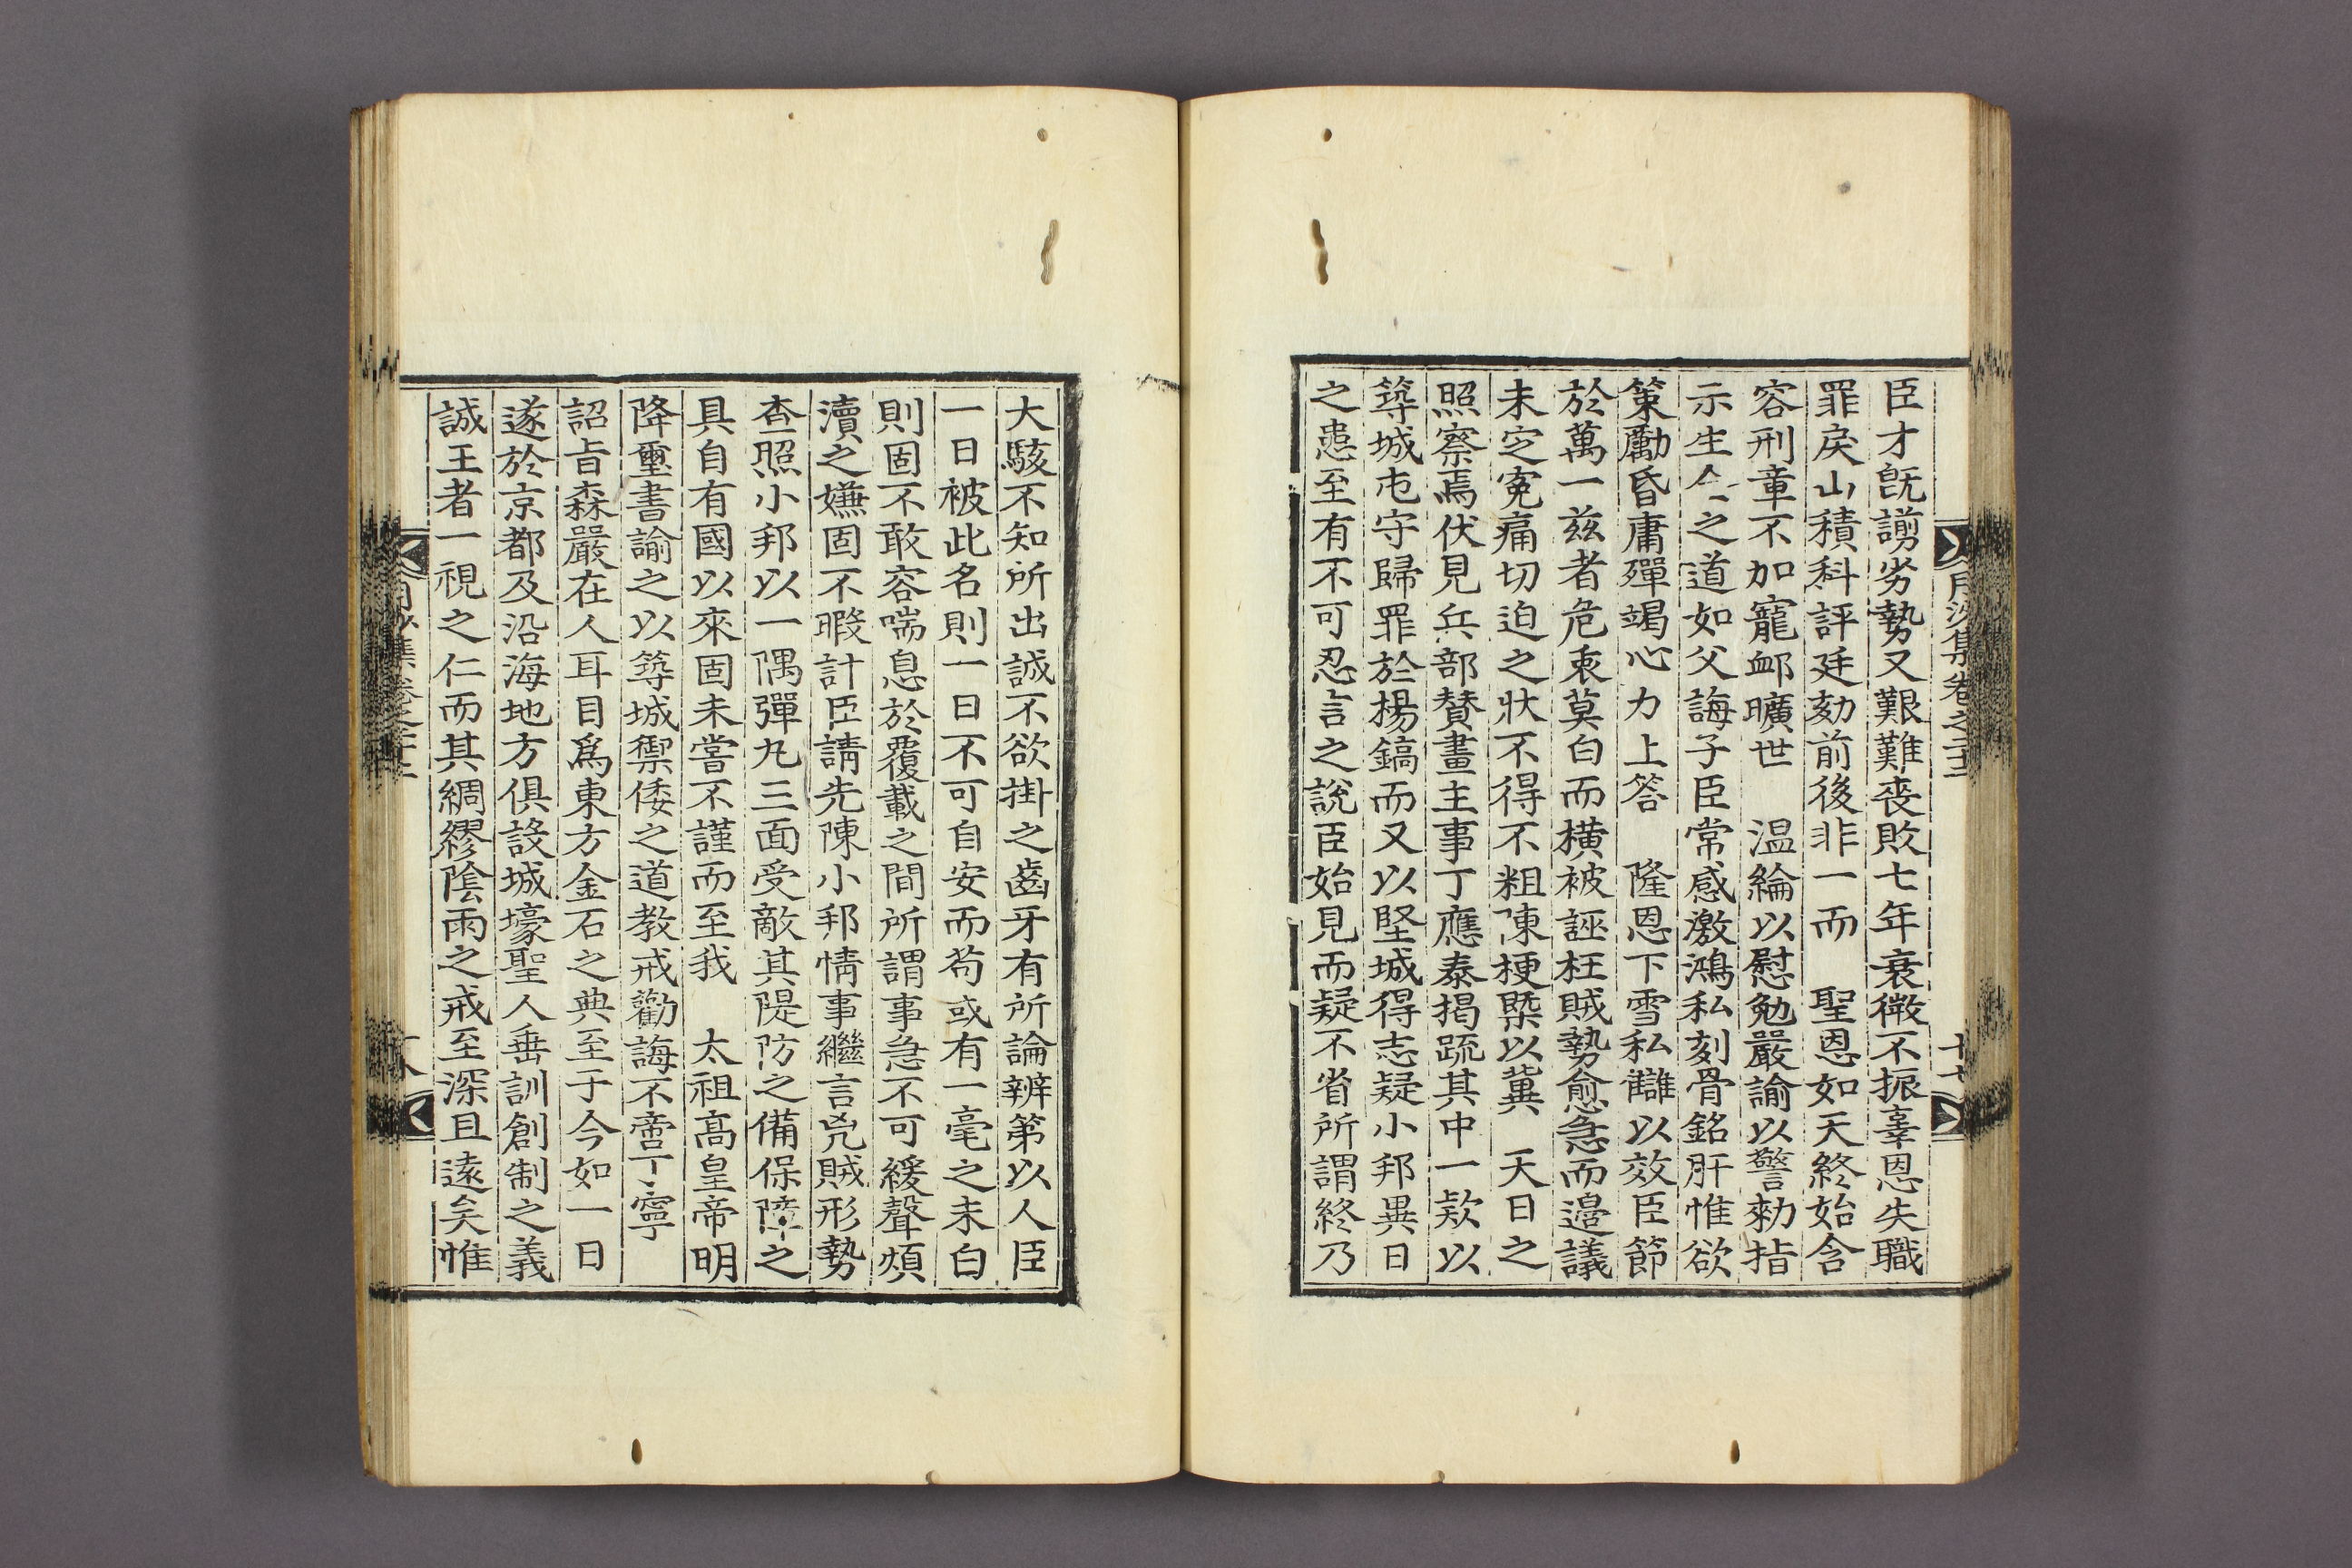 臣才旣謭劣勢又艱難喪敗七年衰微不振辜恩失職
罪戾山積科評廷劾前後非一而 聖恩如天終始含
容刑章不加寵衈曠世 溫綸以慰勉嚴諭以警勑指
示生全之道如父誨子臣常感激鴻私刻骨銘肝惟欲
策勵昏庸殫竭心力上答 隆恩下雪私讎以效臣節
於萬一玆者危衷莫白而橫被誣枉賊勢愈急而邊議
未定寃痛切迫之狀不得不粗陳梗槩以冀 天日之
照察焉伏見兵部贊畫主事丁應泰揭疏其中一款以
築城屯守歸罪於楊鎬而又以堅城得志疑小邦異日
之患至有不可忍言之說臣始見而疑不省所謂終乃
月沙集卷之二十二
十七
大駭不知所出誠不欲掛之齒牙有所論辨第以人臣
一日被此名則一日不可自安而苟或有一毫之未白
則固不敢容喘息於覆載之間所謂事急不可緩聲煩
瀆之嫌固不暇計臣請先陳小邦情事繼言兇賊形勢
查照小邦以一隅彈丸三面受敵其隄防之備保障之
具自有國以來固未嘗不謹而至我 太祖高皇帝明
降璽書諭之以築城禦倭之道教戒勸誨不啻丁寧
詔旨森嚴在人耳目爲東方金石之典至于今如一日
遂於京都及沿海地方俱設城壕聖人垂訓創制之義
誠王者一視之仁而其綢繆陰雨之戒至深且遠矣惟